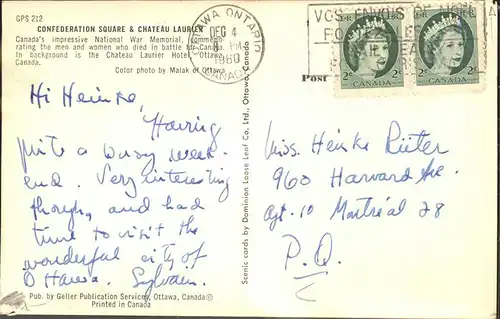 GPS 212
CONFEDERATION SQUARE & CHATEAU LAURIER
Canada's impressive National War Memorial, commemo-
rating the men and women who died in battle for Canada.
In background is the Chateau Laurier Hotel, Ottawa,
Canada.
Color photo by Malak of Ottawa
OTTAWA ONTARIO
DEC 4
PM
1960
CANADA
VOS ENVOIS DE NOEL
Post
2¢ CANADA 2¢
2¢ CANADA 2¢
Hi Heinke,
Having
quite a busy week-
end. Very interesting
though, and had
time to visit the
wonderful city of
Ottawa. Sylvain.
Scenic cards by Dominion Loose Leaf Co. Ltd., Ottawa, Canada
Miss. Heinke Rüter
960 Harvard Ave.
Apt. 10 Montréal 28
P.Q.
Pub. by Geller Publication Services, Ottawa, Canada ©
Printed in Canada